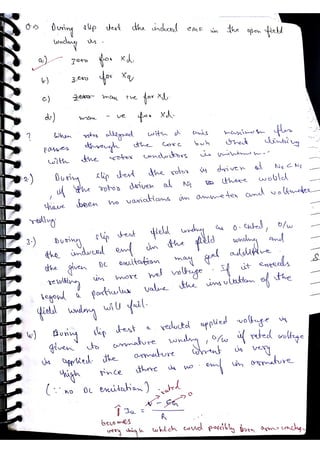 Q:> During slip test the induced emf in the open field
winding is.
a) zero for Xd.
b) zero for Xq
c) max +ve for Xd.
d) max -ve for Xd.
? When rotor alligned with d axis maximum flux
passes through the core but that linking
with the rotor conductors is minimum.
2.) During slip test the rotor is driven at Nr < Ns
, if the rotor driven at Ns there would
have been no variations in ammeter and voltmeter
reading
3.) During slip test field wndg is O.Cuted, o/w
the induced emf in the field winding and
the given DC excitation may get additive
resulting in more net voltage. If it exceeds
beyond a particular value the insulation of the
field wndng will fail.
4) During slip test a reduced applied voltage is
given to armature wndng, o/w if rated voltage
is applied the armature current is very
high since there is no emf in armature
(∵ no DC excitation)
rated
↑ Ia = V - Eg 0
R
becomes
very high which could possibly burn arm-wndng.